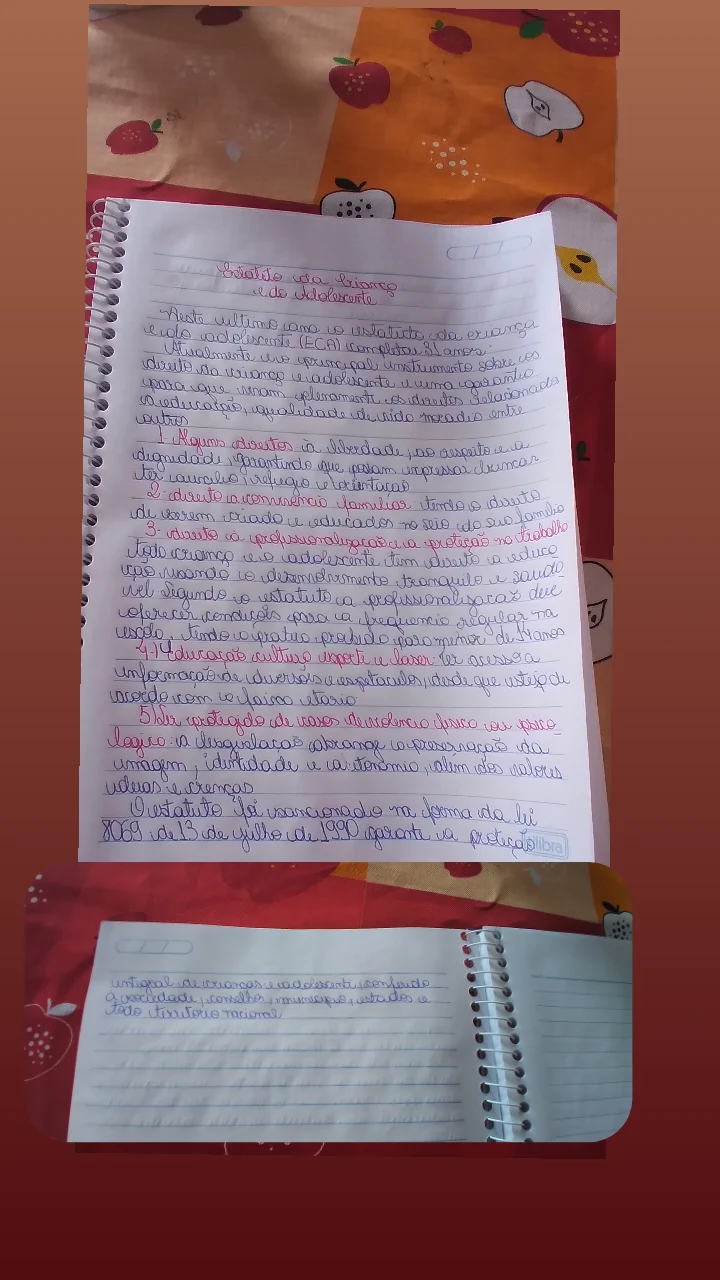 Estatuto da Criança
e do Adolescente
Neste ultimo ano o estatuto da criança
e do adolescente (ECA) completou 31 anos.
Atualmente e o principal instrumento sobre os
direito da criança e adolescente e uma garantia
para que vivam plenamente os direitos relacionados
a educação, qualidade de vida moradia entre
outros
1 Alguns direitos a liberdade, ao respeito e a
dignidade, garantindo que possam expressar brincar
ter auxilio, refugio e orientação
2- direito a convivência familiar tendo o direito
de serem criado e educados no seio da sua família
3- direito à profissionalização e a proteção no trabalho
toda criança e o adolescente tem direito a educa
ção visando o desenvolvimento tranquilo e saudá
vel segundo o estatuto a profissionalização deve
oferecer condições para a frequencia regular na
escola, tendo a pratica proibida para menor de 14 anos
4) Educação cultura esporte e lazer ter acesso a
informação de diversões e espetaculos, desde que esteja de
acordo com a faixa etaria
5) Ser protegido de casos de violencia fisica ou psico
logica: a desigualação abrange a preservação da
imagem, identidade e a autonomia, além dos valores
ideias e crenças
O estatuto foi sancionado na forma da lei
8069 de 13 de julho de 1990 garante a proteção
tilibra
integral de crianças e adolescente, conferido
a sociedade, conselho, municipio, estados e
todo território nacional